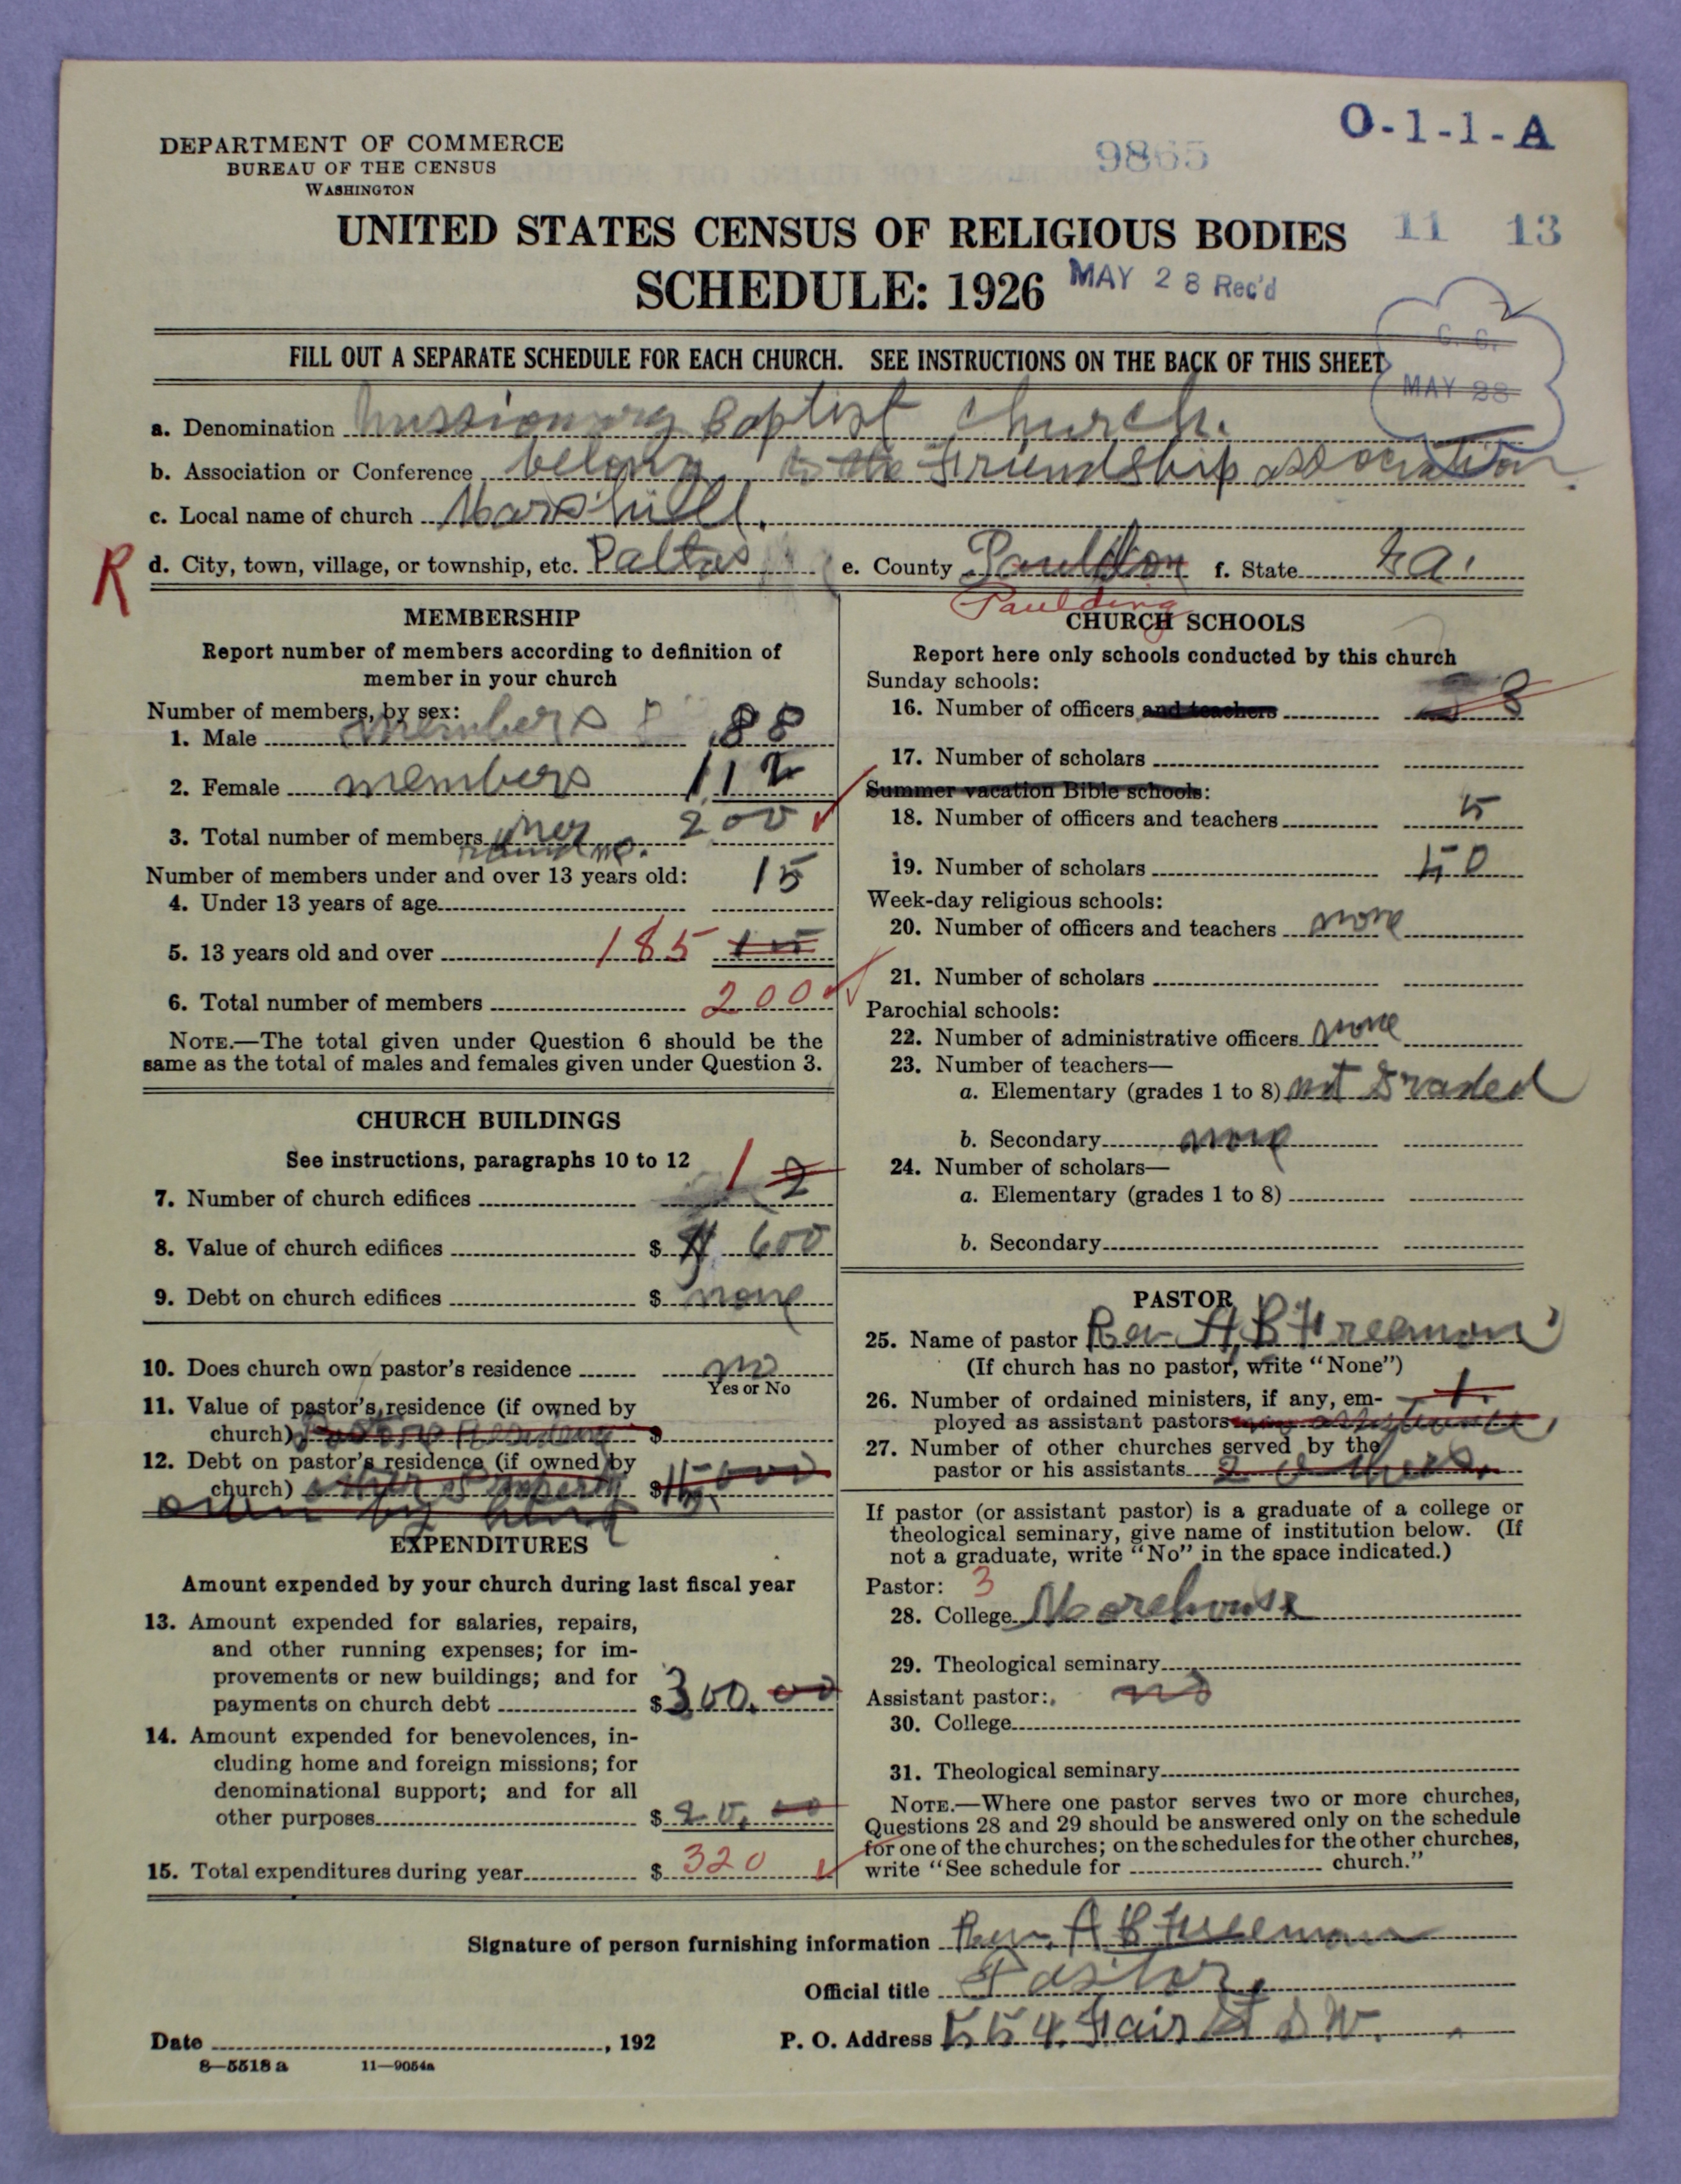 DEPARTMENT OF COMMERCE
BUREAU OF THE CENSUS
WASHINGTON
O-1-1-A
9865
UNITED STATES CENSUS OF RELIGIOUS BODIES
11 13
SCHEDULE: 1926
MAY 28 Rec'd
C. C.
MAY 28
FILL OUT A SEPARATE SCHEDULE FOR EACH CHURCH. SEE INSTRUCTIONS ON THE BACK OF THIS SHEET
a. Denomination Missionary Baptist Church.
b. Association or Conference belong to the Friendship association.
c. Local name of church Mars hill.
R
d. City, town, village, or township, etc. Daltas e. County Pauldon f. State Ga.
Paulding
MEMBERSHIP
Report number of members according to definition of
member in your church
Number of members, by sex:
1. Male members 88
2. Female members 112
3. Total number of members 200
Number of members under and over 13 years old: 15
4. Under 13 years of age
5. 13 years old and over 185
6. Total number of members 200
NOTE.—The total given under Question 6 should be the
same as the total of males and females given under Question 3.
CHURCH BUILDINGS
See instructions, paragraphs 10 to 12
7. Number of church edifices 1 2
8. Value of church edifices $ 600
9. Debt on church edifices $ none
10. Does church own pastor's residence no
Yes or No
11. Value of pastor's residence (if owned by
church) Pastors Residence $
12. Debt on pastor's residence (if owned by
church) other property $
own by
EXPENDITURES
Amount expended by your church during last fiscal year
13. Amount expended for salaries, repairs,
and other running expenses; for im-
provements or new buildings; and for
payments on church debt $ 300.00
14. Amount expended for benevolences, in-
cluding home and foreign missions; for
denominational support; and for all
other purposes $ 20.00
15. Total expenditures during year $ 320
CHURCH SCHOOLS
Report here only schools conducted by this church
Sunday schools:
16. Number of officers and teachers 8
17. Number of scholars
Summer vacation Bible schools:
18. Number of officers and teachers 5
19. Number of scholars 50
Week-day religious schools:
20. Number of officers and teachers none
21. Number of scholars
Parochial schools:
22. Number of administrative officers none
23. Number of teachers—
a. Elementary (grades 1 to 8) not Graded
b. Secondary none
24. Number of scholars—
a. Elementary (grades 1 to 8)
b. Secondary
PASTOR
25. Name of pastor Rev A B Freemon
(If church has no pastor, write "None")
26. Number of ordained ministers, if any, em- 1.
ployed as assistant pastors
27. Number of other churches served by the
pastor or his assistants 2 others.
If pastor (or assistant pastor) is a graduate of a college or
theological seminary, give name of institution below. (If
not a graduate, write "No" in the space indicated.)
Pastor: 3
28. College Morehouse
29. Theological seminary
Assistant pastor: no
30. College
31. Theological seminary
NOTE.—Where one pastor serves two or more churches,
Questions 28 and 29 should be answered only on the schedule
for one of the churches; on the schedules for the other churches,
write "See schedule for church."
Signature of person furnishing information Rev. A B Freeman
Official title Pastor.
Date , 192 P. O. Address 554 Fair St S W.
8—5518 a 11—9054a